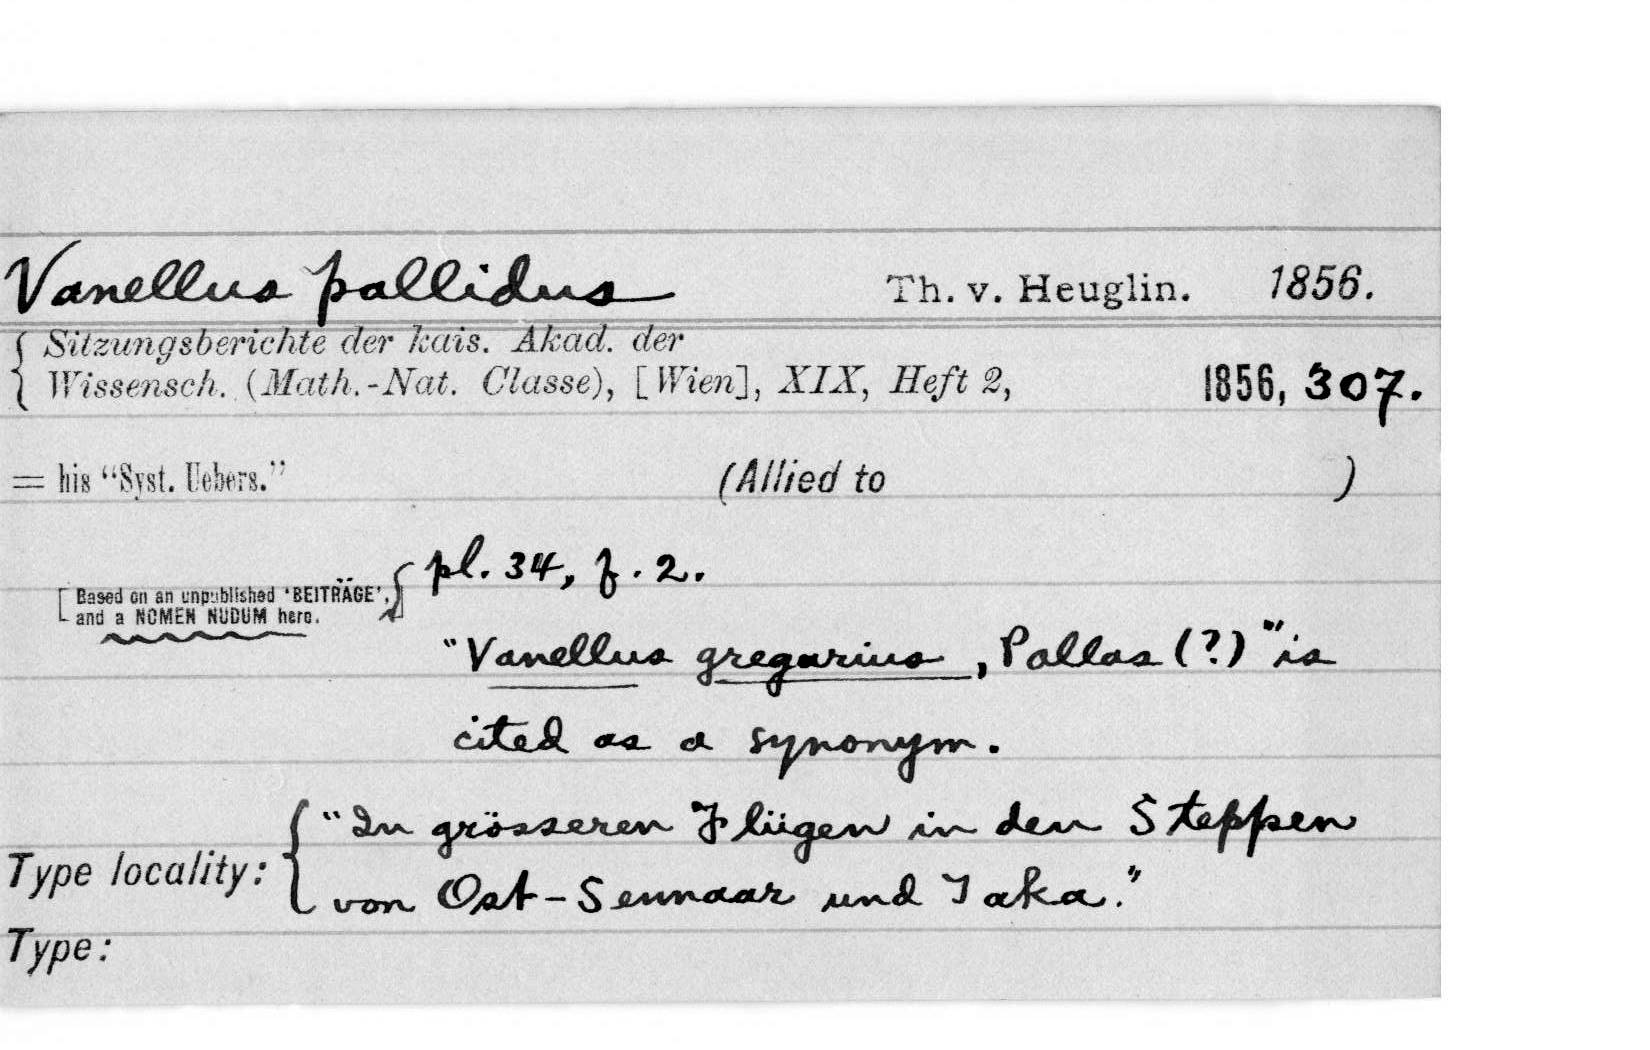 Vanellus pallidus Th. v. Heuglin. 1856.
Sitzungsberichte der kais. Akad. der
Wissensch. (Math.-Nat. Classe), [Wien], XIX, Heft 2, 1856, 307.
= his “Syst. Uebers.” (Allied to )
pl. 34, f. 2.
[Based on an unpublished ‘BEITRÄGE’,
and a NOMEN NUDUM here.]
"Vanellus gregarius, Pallas (?)" is
cited as a synonym.
"In grösseren Flügen in den Steppen
Type locality: von Ost-Sennaar und Taka."
Type: